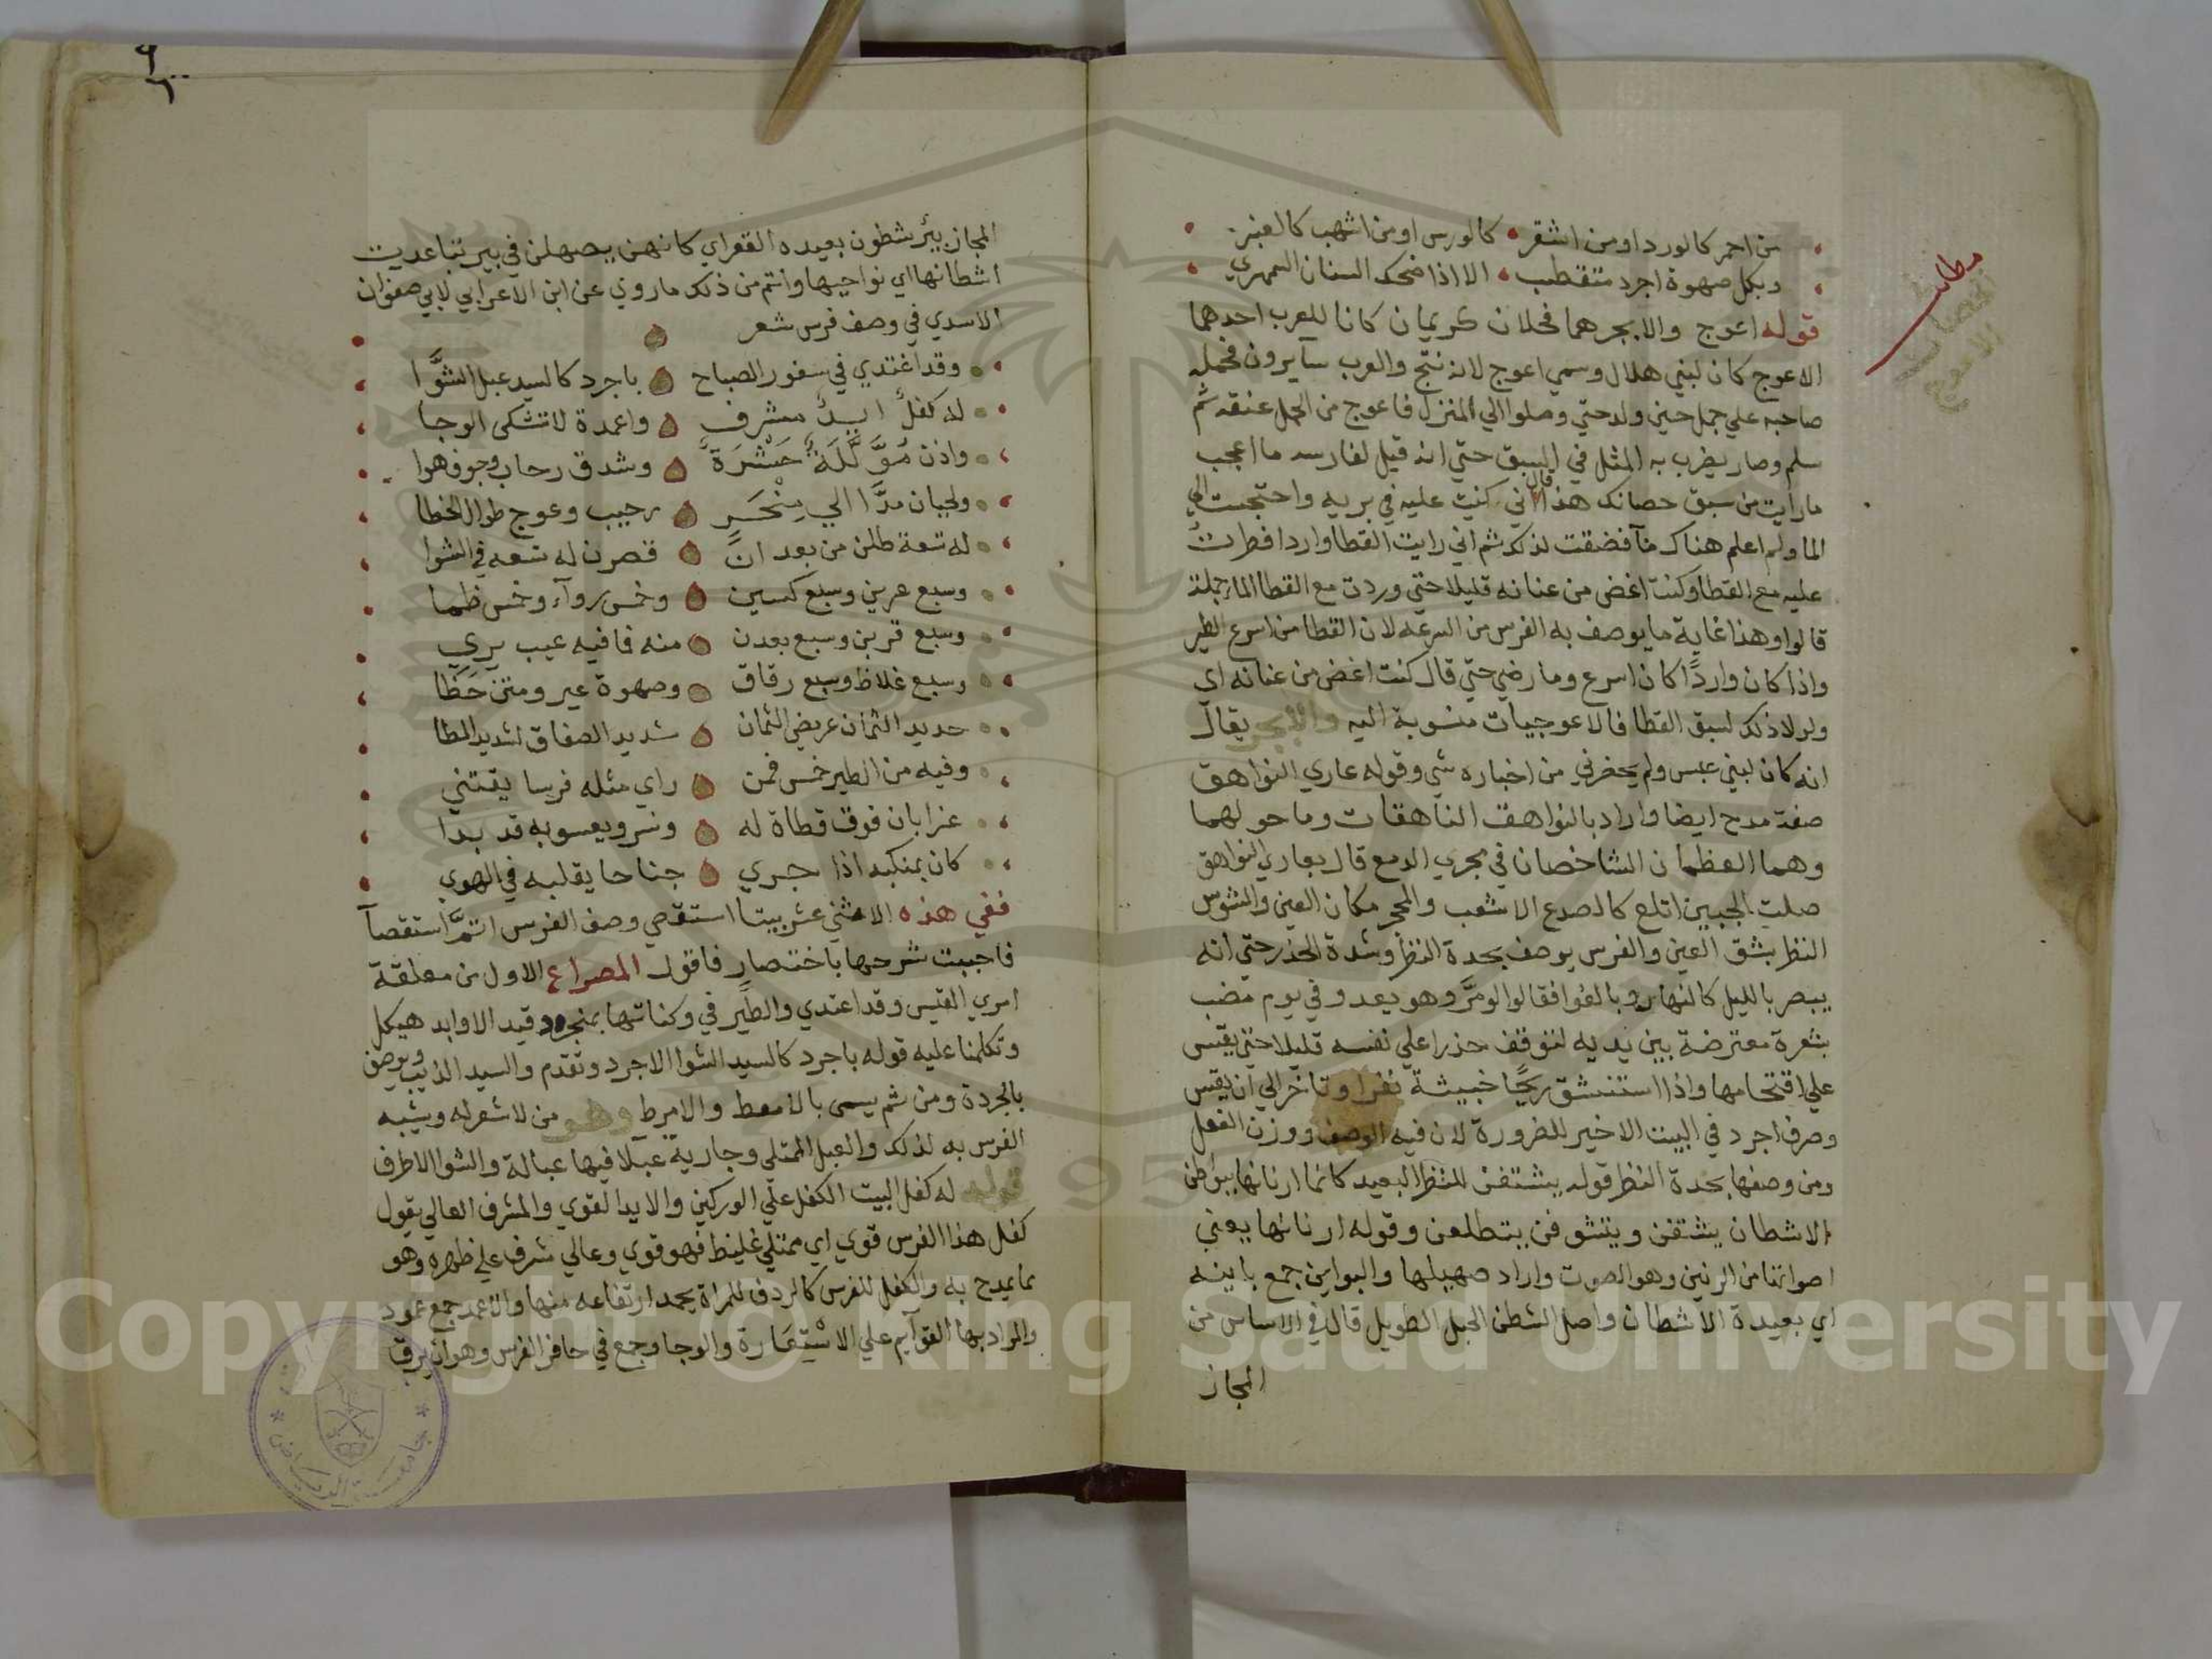 من احمر كالورد او من اشقر كالورس او من اشهب كالعنبر
وبكل صهوة اجرد متقطب الا اذا ضحك السنان السمهري
قوله اعوج والابجر هما فحلان كريمان كانا للعرب احدهما
الاعوج كان لبني هلال وسمي اعوج لانه نتج والعرب سايرون فحمله
صاحبه علي جمل حين ولد حتي وصلوا الي المنزل فاعوج من الحمل عنقه ثم
سلم وصار يضرب به المثل في السبق حتي انه قيل لفارسه ما اعجب
ما رايت من سبق حصانك هذا قال اني كنت عليه في بريه واحتجت الي
الما ولم اعلم هناك مآ فضقت لذلك ثم اني رايت القطا واردا فطردت
عليه مع القطا وكنت اغض من عنانه قليلا حتي وردت مع القطا الما جملة
قالوا وهذا غاية ما يوصف به الفرس من السرعه لان القطا من اسرع الطير
واذا كان واردًا كان اسرع وما رضي حتي قال كنت اغض من عنانه اي
ولولا ذلك لسبق القطا فالاعوجيات منسوبة اليه والابجر يقال
انه كان لبني عبس ولم يحضرني من اخباره شي وقوله عاري النواهق
صفة مدح ايضا واراد بالنواهق الناهقات وما حولهما
وهما العظمان الشاخصان في مجري الدمع قال بعاري النواهق
صلت الجبين اتلع كالصدع الاشعب والمحجر مكان العين والشوس
النظر بشق العين والفرس يوصف بحدة النظر وشدة الحذر حتي انه
يبصر بالليل كالنهار وبالغوا فقالوا لو مرَّ وهو يعدو في يوم مضب
بشعرة معترضة بين يديه لتوقف حذرا علي نفسه قليلا حتي يقيس
علي اقتحامها واذا استنشق ريحًا خبيثة نفرا وتاخر الي ان يقيس
وصرف اجرد في البيت الاخير للضرورة لان فيه الوصف ووزن الفعل
ومن وصفها بحدة النظر قوله يشتفن للنظر البعيد كانما ارنانها ببواطن
الاشطان يشتفن ويتشوفن يتطلعن وقوله ارنانها يعني
اصواتها من الرنين وهو الصوت واراد صهيلها والبواين جمع باينه
اي بعيدة الاشطان واصل الشطن الحبل الطويل قال في الاساس من
المجاز
مطلب
الحصان
الاعوج
المجاز بئر شطون بعيده القعر اي كانهن يصهلن في بير تباعدت
اشطانها اي نواحيها واتم من ذلك ما روي عن ابن الاعرابي لابي صفوان
الاسدي في وصف فرس شعر
وقد اغتدي في سفور الصباح باجرد كالسيد عبل الشوَّا
له كفلٌ ايدٌ مشرف واعمدة لاتشكي الوجا
واذن مؤلَّلةٌ حَشْرَةٌ وشدق رحاب وجوف هوا
ولحيان مدَّا الي مِنْخَرٍ رحيب وعوج طوال الخطا
له تسعة طلن من بعد انَّ قصرن له تسعه في الشوا
وسبع عرين وسبع كسين وخمس روآء وخمس ظما
وسبع قربن وسبع بعدن منه فما فيه عيب يري
وسبع غلاظ وسبع رقاق وصهوة عير ومتن حَظَا
حديد الثمان عريض الثمان شديد الصفاق شديد المطا
وفيه من الطير خمس فمن راي مثله فرسا يقتني
غرابان فوق قطاة له ونسر ويعسوبه قد بدا
كان بمنكبه اذا جري جناحا يقلبه في الهوي
ففي هذه الاثني عشر بيتا استقصي وصف الفرس اتمَّ استقصآ
فاحببت شرحها باختصار فاقول المصراع الاول من معلقة
امري القيس وقد اغتدي والطير في وكناتها بمنجرد قيد الاوابد هيكل
وتكلمنا عليه قوله باجرد كالسيد الشوا الاجرد وتقدم والسيد الذيب ويوصف
بالجردة ومن ثم يسمي بالامعط والامرط وهو من لا شعر له ويشبه
الفرس به لذلك والعبل الممتلي وجارية عبلا فيها عبالة والشوا الاطرف
قوله له كفل البيت الكفل علي الوركين والايد القوي والمشرف العالي يقول
كفل هذا الفرس قوي اي ممتلي غليظ فهو قوي وعالي شرف علي ظهره وهو
مما يمدح به والكفل للفرس كالردف للمراة يحمد ارتفاعه منها والاعمد جمع عمود
والمراد بها القوآيم علي الاسْتِعَارة والوجا وجع في حافر الفرس وهو ان يرق
Copyright © King Saud University